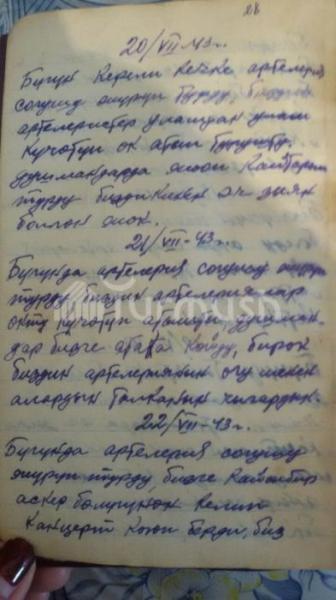 28
20/VII-43-г.
Бүгүн кечели кечке артелерия
согушу жүрүп турду, биздин
артелеристер улантан улам
күчөтүп ок атып турушту.
душмандарда жооп кайтарып
турду биздикинен эч зыян
болгон жок.
21/VII-43-г.
Бүгүнда артелерия согушу жүрүп
турду биздин артелериялар
окту күчөтүп атышты, душман-
дар бизге атака койду, бирок
биздин артелериянын огу менен
алардын талканын чыгардык.
22/VII-43-г.
Бүгүнда артелерия согушу
жүрүп турду бизге
аскер бөлүгүнөн келип
канцерт коюп берди, биз
Turmush